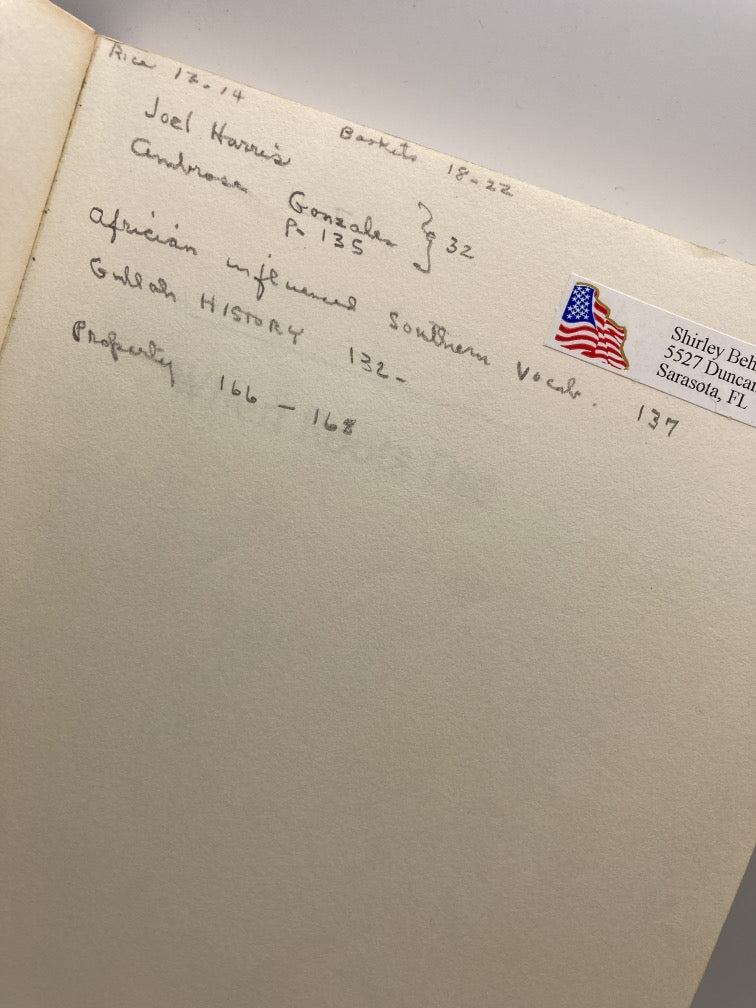 Rice 13-14
Baskets 18-22
Joel Harris
Ambrose Gonzales } 32
P. 135
African influenced Southern Vocab. 137
Gullah HISTORY 132-
Property 166 - 168
Shirley Beh
5527 Duncan
Sarasota, FL